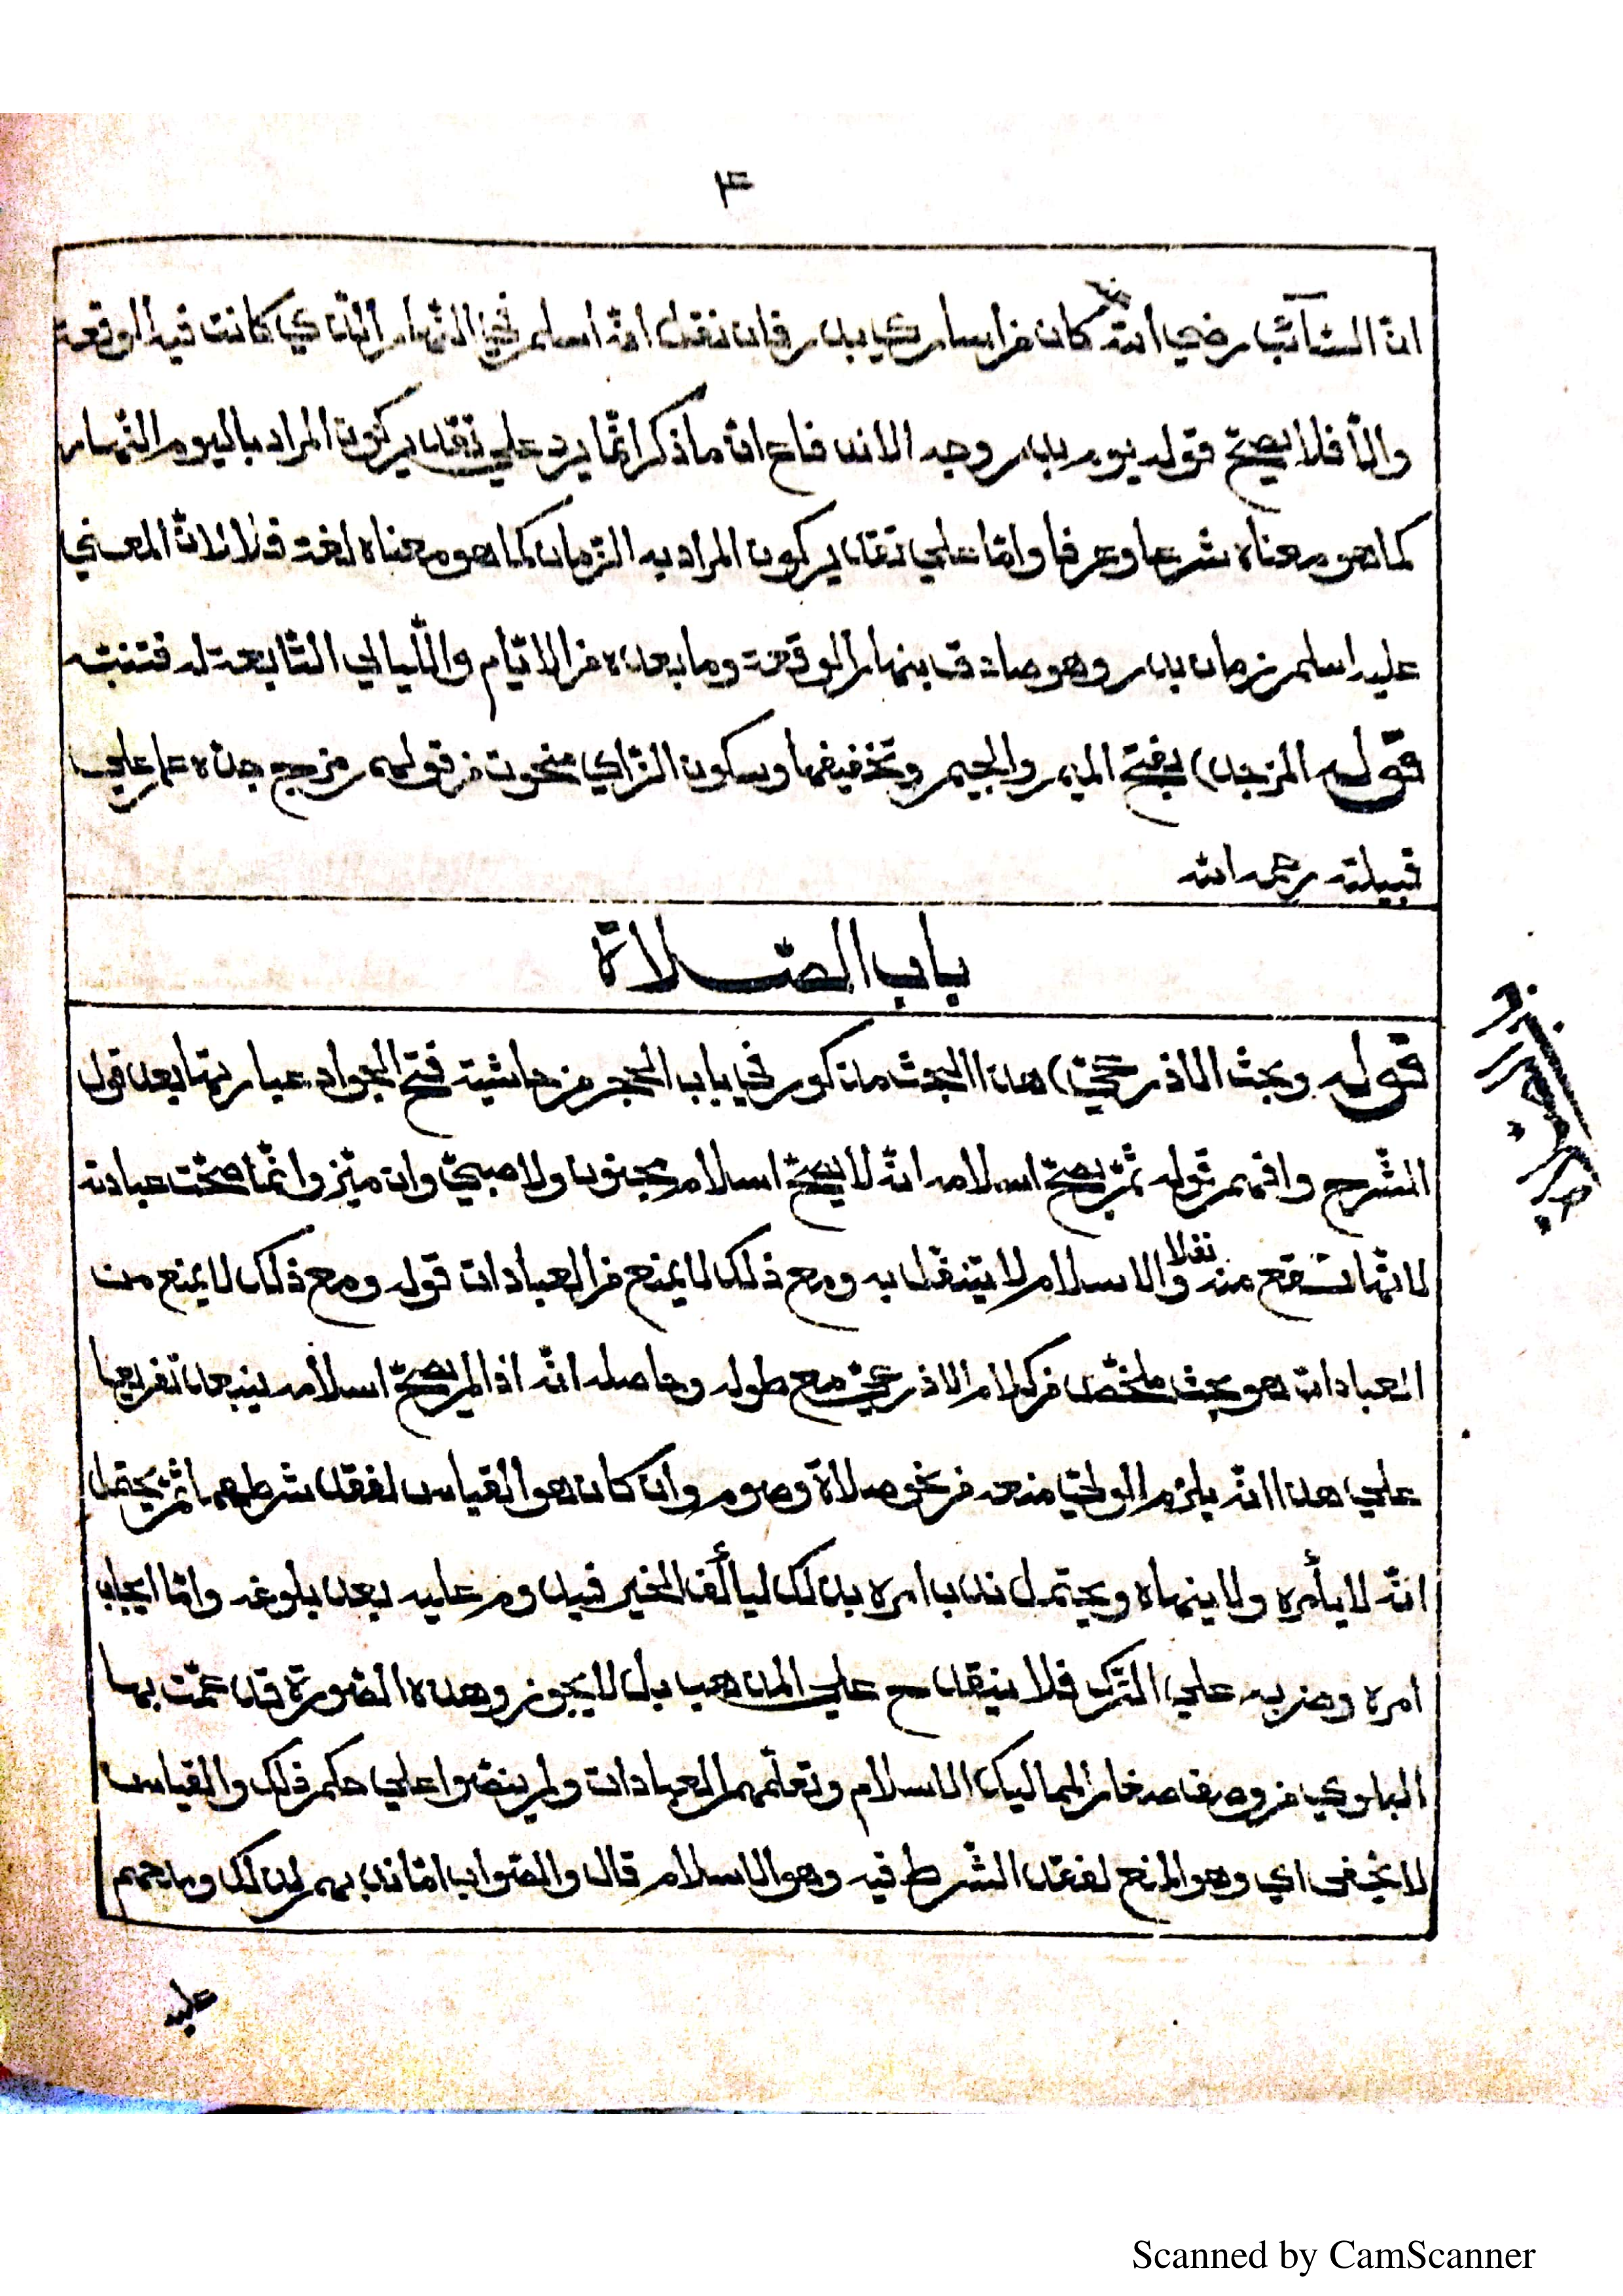 ٣
انّ السّائب رضي الله عنه كان من اسارى بدر فان نقل انّه اسلم في النّهار الّذي كانت فيه الوقعة
والّا فلا يصحّ قوله يوم بدر وجه الاندفاع انّ ما ذكر انّما يرد على تقدير كون المراد باليوم النّهار
كما هو معناه شرعا وعرفا وامّا على تقدير كون المراد به الزّمان كما هو معناه لغة فلا لانّ المعنى
عليه اسلم زمان بدر وهو صادق بنهار الوقعة وما بعده من الايّام واللّيالي التّابعة له فتنبّه
قوله المزجد) بفتح الميم والجيم وتخفيفها وسكون الزّاي منحوت من قولهم مزجج جدّه علم على
قبيلته رحمه الله
باب الصّلاة
قوله وبحث الاذرعيّ) هذا البحث مذكور في باب الحجر من حاشية فتح الجواد عبارتها بعد قول
الشّرح وافهم قوله ثمّ يصحّ اسلامه انّه لا يصحّ اسلام مجنون ولا صبيّ وان ميّز وانّما صحّت عبادته
لانّها تقع منه نفلا والاسلام لا يتنفّل به ومع ذلك لا يمنع من العبادات قوله ومع ذلك لا يمنع من
العبادات هو بحث ملخّص من كلام الاذرعيّ مع طوله وحاصله انّه اذا لم يصحّ اسلامه ينبعد تفريعها
على هذا انّه يلزم الوليّ منعه من نحو صلاة وصوم وان كان هو القياس لفقد شرطهما ثمّ يحتمل
انّه لا يأمره ولا ينهاه ويحتمل ندب امره بذلك ليألف الخير فيدوم عليه بعد بلوغه وامّا ايجاب
امره وضربه على التّرك فلا ينقدح على المذهب بل لا يجوز وهذه الصّورة قد عمّت بها
البلوى من وصف صغار المماليك الاسلام وتعلّمهم العبادات ولم ينصّوا على حكم ذلك والقياس
لا يخفى اي وهو المنع لفقد الشّرط فيه وهو الاسلام قال والصّواب اما ندبهم لذلك وحثّهم
عليه
Scanned by CamScanner